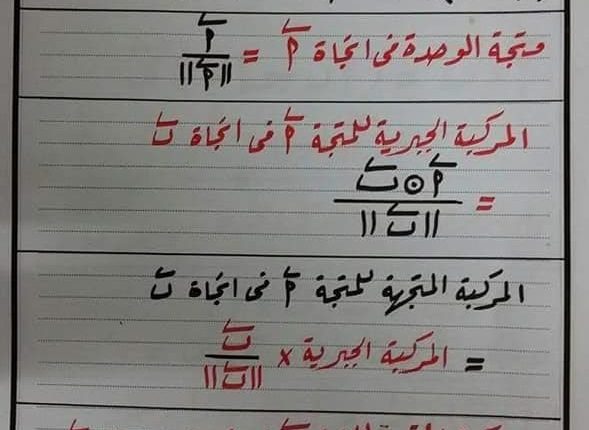 متجة الوحدة فى اتجاة أ = أ / ||أ||
المركبة الجبرية للمتجة أ فى اتجاة ب
= أ ⊙ ب / ||ب||
المركبة المتجهة للمتجة أ فى اتجاة ب
= المركبة الجبرية × ب / ||ب||